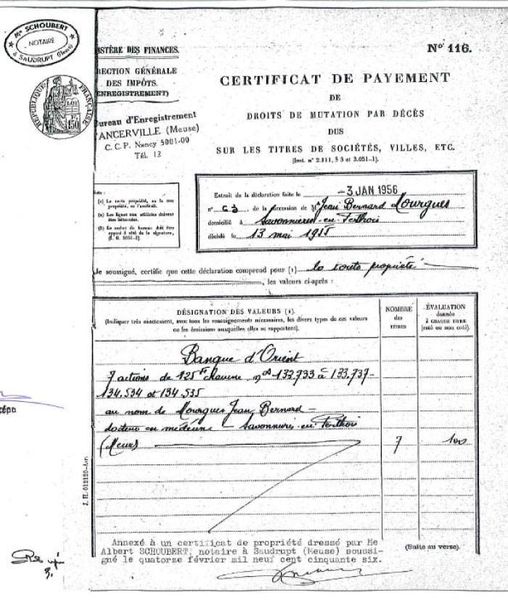 Me SCHOUBERT
NOTAIRE
à SAUDRUPT (Meuse)
RÉPUBLIQUE FRANÇAISE
NISTÈRE DES FINANCES.
RECTION GÉNÉRALE
DES IMPÔTS
(ENREGISTREMENT)
Bureau d'Enregistrement
ANCERVILLE (Meuse)
C. C. P. Nancy 5001-09
Tél. 12
N° 116.
CERTIFICAT DE PAYEMENT
DE
DROITS DE MUTATION PAR DÉCÈS
DUS
SUR LES TITRES DE SOCIÉTÉS, VILLES, ETC.
(Inst. n° 2.111, § 3 et 3.051-1).
Extrait de la déclaration faite le -3 JAN 1956
n° de la succession de M Jean Bernard Mourgues
domicilié à Savonnières-en-Perthois
décédé le 13 mai 1955
Je soussigné, certifie que cette déclaration comprend pour (1) la toute propriété
, les valeurs ci-après :
DÉSIGNATION DES VALEURS (2)
(Indiquer très exactement, avec tous les renseignements nécessaires, les divers types de ces valeurs
ou les émissions auxquelles elles se rapportent).
NOMBRE
des
titres
ÉVALUATION
donnée
à CHAQUE TITRE
(coté ou non coté)
Banque d'Orient
7 actions de 125 f chacune nos 133.733 à 133.737-
134.534 et 134.535
au nom de Mourgues Jean Bernard -
docteur en médecine - Savonnières-en-Perthois
(Meuse) 7 100
Annexé à un certificat de propriété dressé par Me
Albert SCHOUBERT, notaire à Saudrupt (Meuse) soussi-
gné le quatorze février mil neuf cent cinquante six.
(Suite au verso).